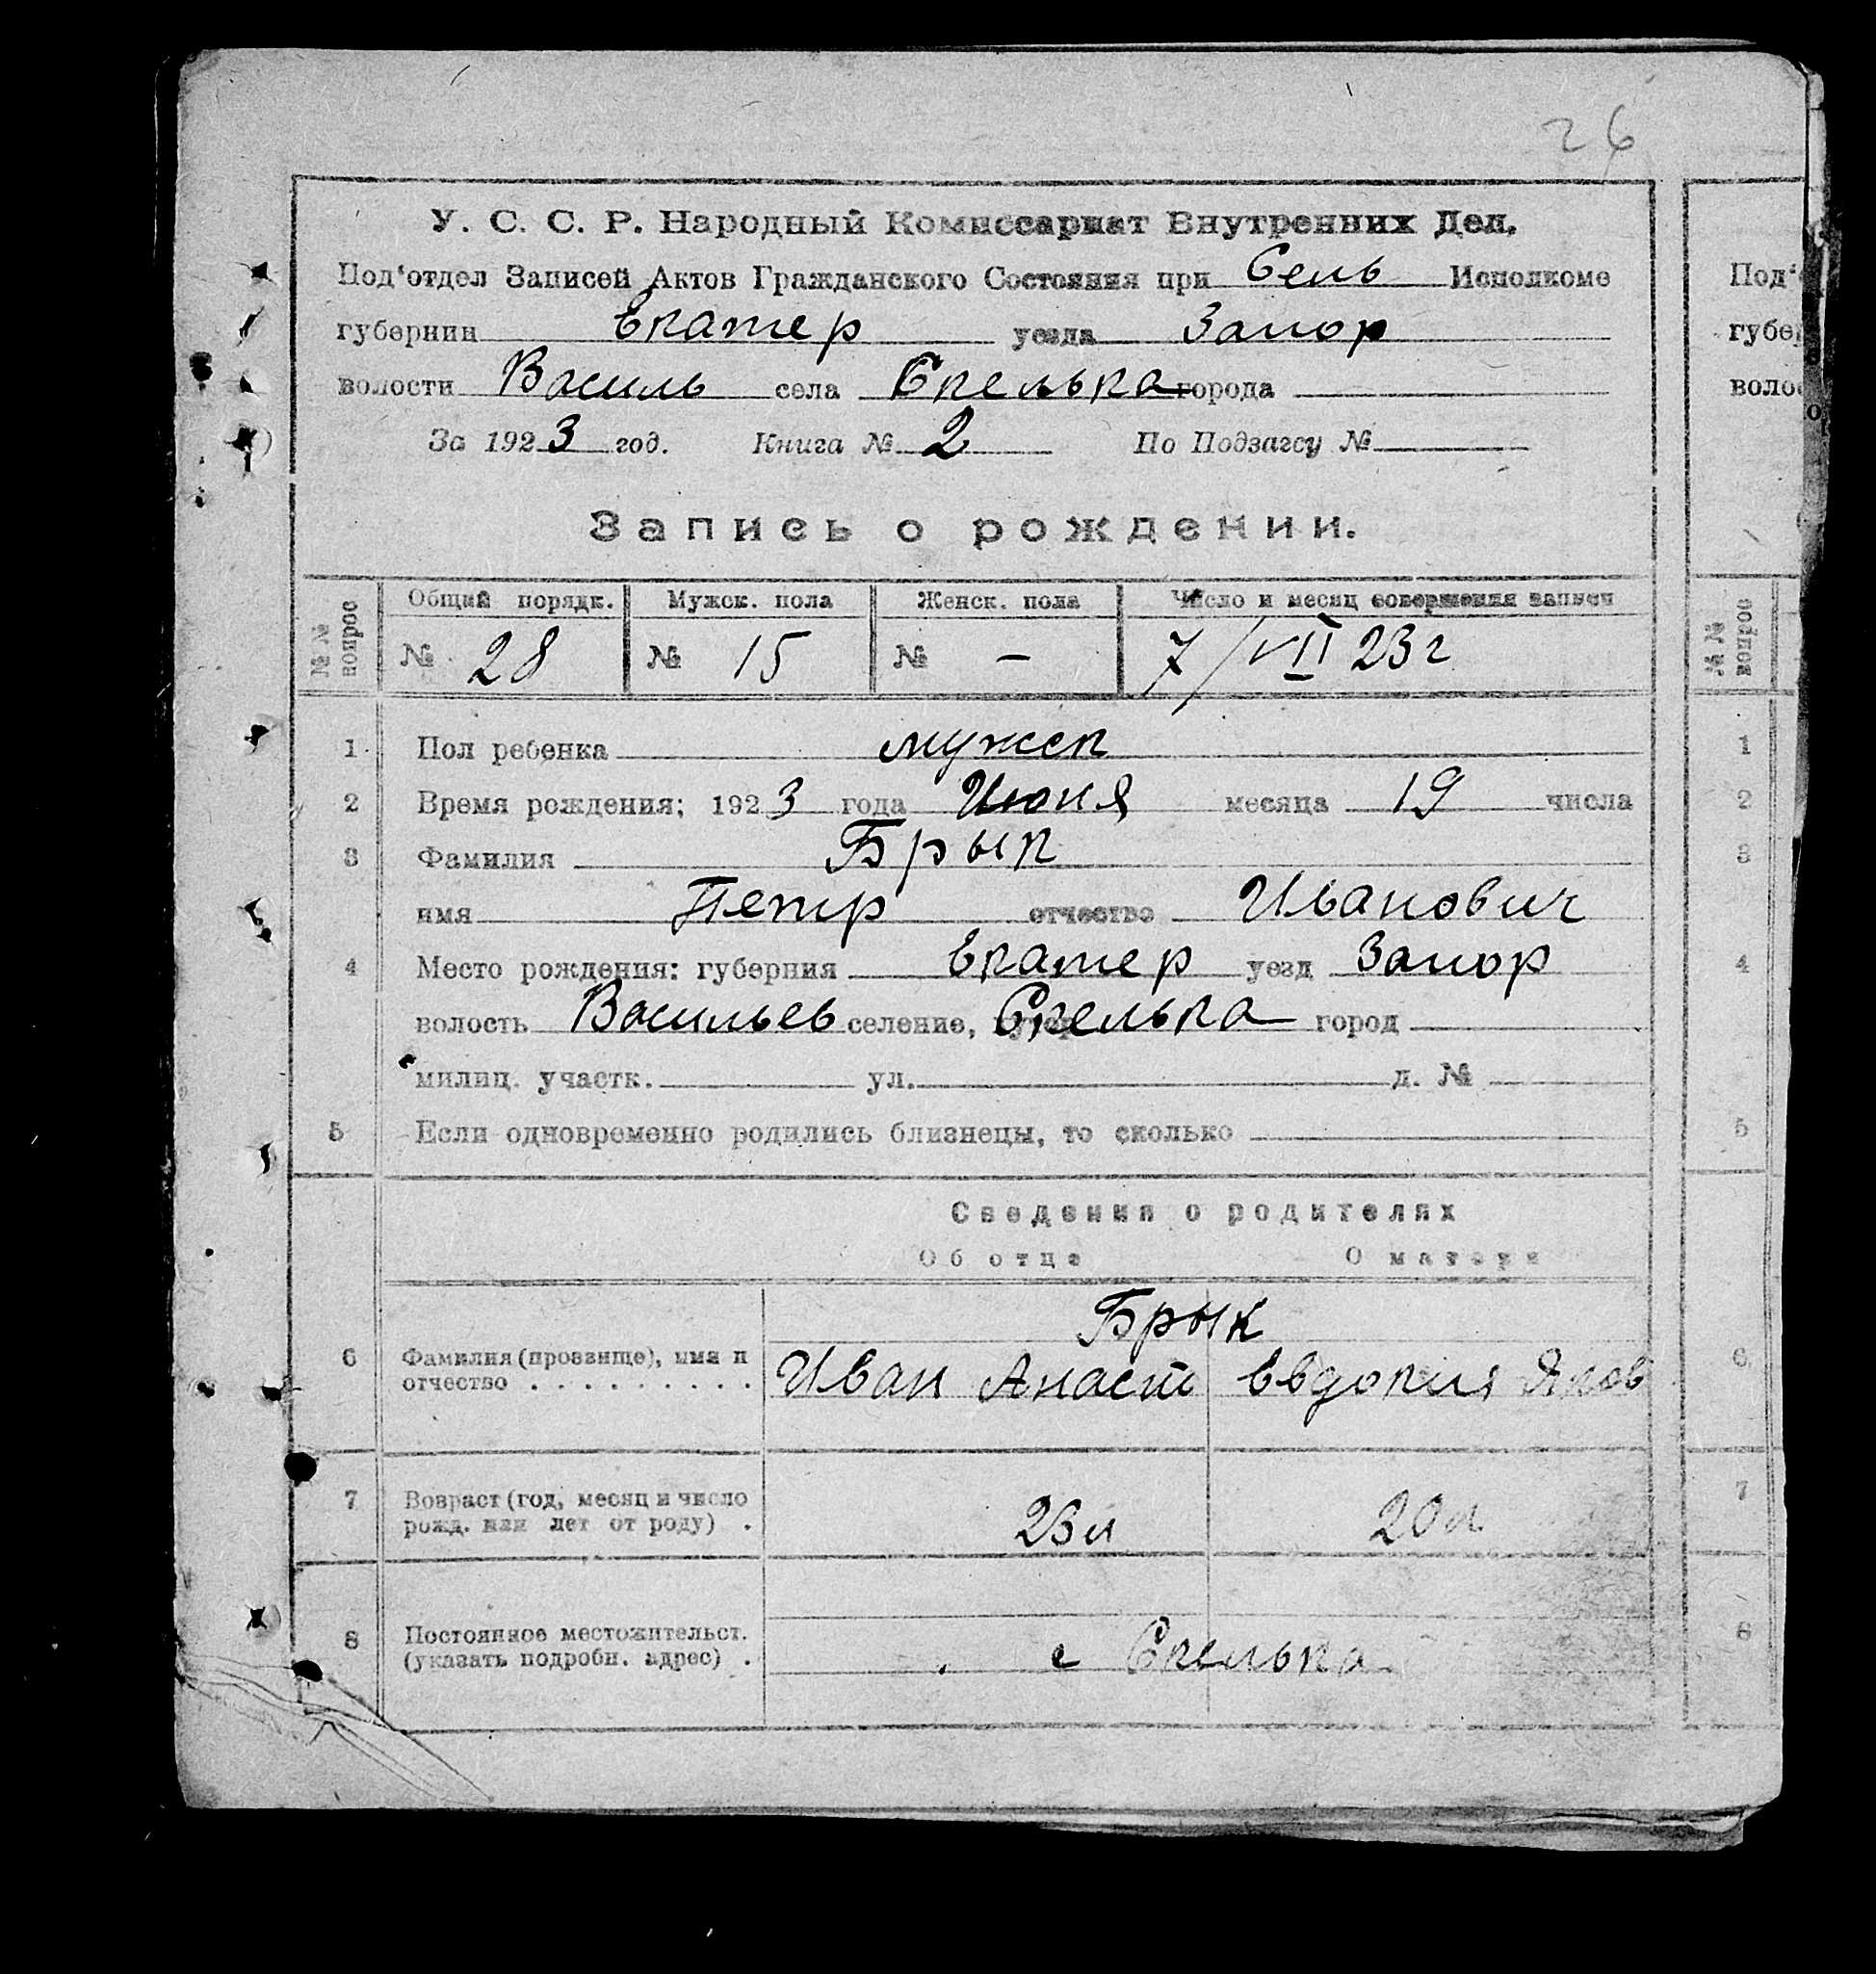 26
У. С. С. Р. Народный Комиссариат Внутренних Дел.
Под‘отдел Записей Актов Гражданского Состояния при Сель Исполкоме
губернии Екатер уезда Запор
волости Василь села Скелька города
За 1923 год. Книга № 2 По Подзагсу №
Запись о рождении.
№№ вопрос Общий порядк. Мужск. пола Женск. пола Число и месяц совершения записи
№ 28 № 15 № — 7/VII 23 г
1 Пол ребенка мужск
2 Время рождения; 1923 года Июня месяца 19 числа
3 Фамилия Брык
имя Петр отчество Иванович
4 Место рождения: губерния Екатер уезд Запор
волость Васильев селение, хутор Скелька город
милиц. участк. ул. д. №
5 Если одновременно родились близнецы, то сколько
Сведения о родителях
Об отце О матери
Брык
6 Фамилия (прозвище), имя и
отчество . . . . . . . . . Иван Анаст Евдокия Яков
7 Возраст (год, месяц и число
рожд. или лет от роду) . 23 л 20 л
8 Постоянное местожительст.
(указать подробн. адрес) . с Скелька
Под‘
губер
волос
№№ вопрос
1
2
3
4
5
6
7
8